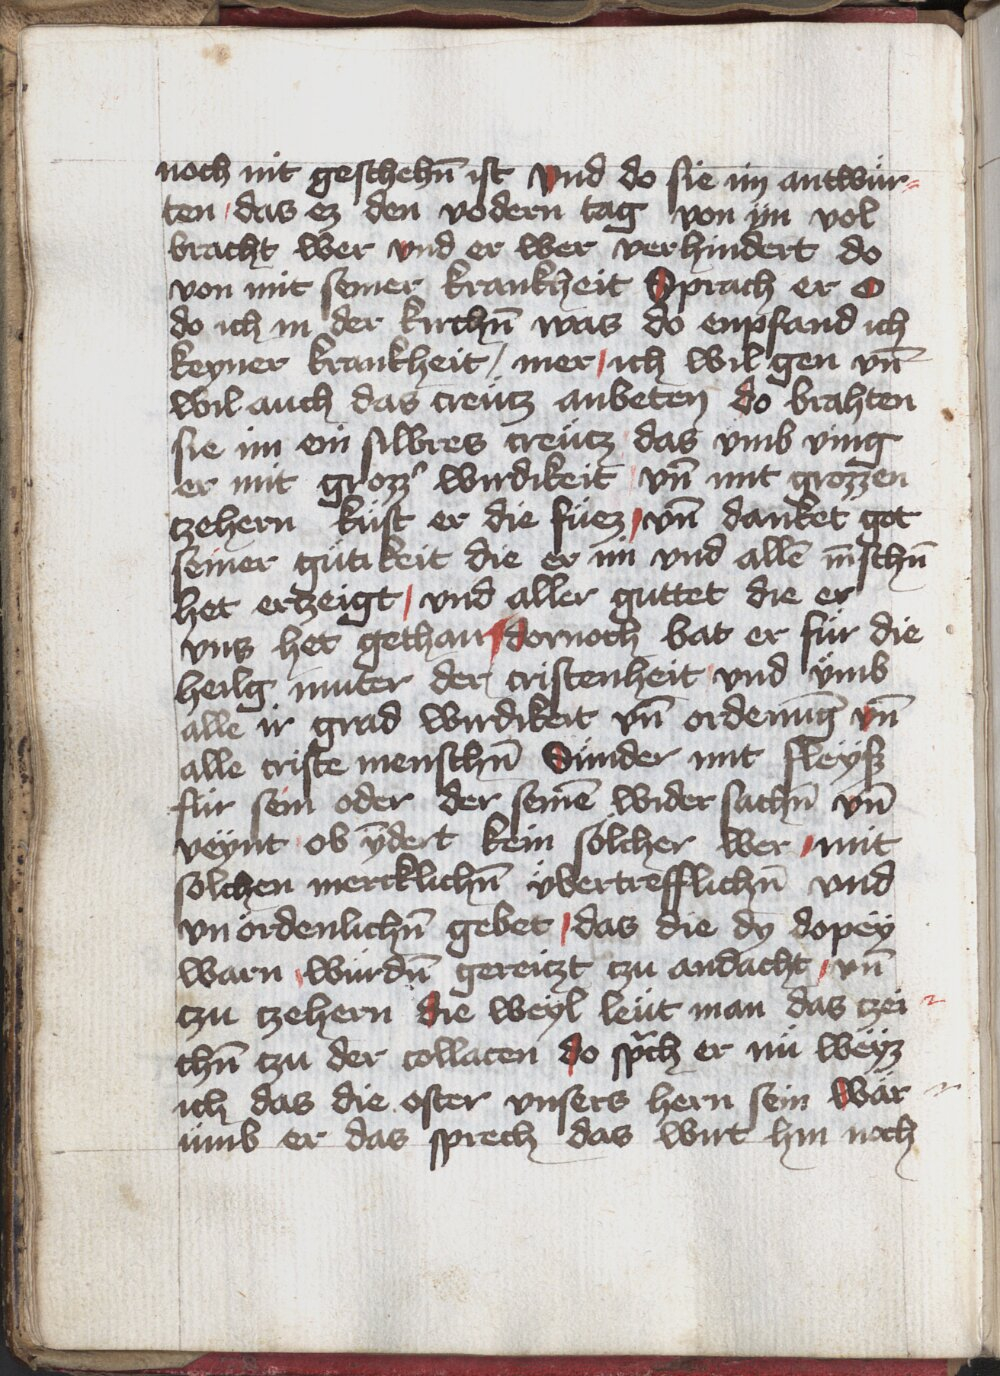 noch nit geschehn̄ ist vnd do sie im antwür⸗
ten / das ez den vodern tag von ÿm vol
bracht wer vnd er wer verhindert do
von mit seiner krankheit Sprach er O
do ich in der kirchn̄ was do enpfand ich
keyner krankheit / mer / ich wil gen vn̄
wil auch das creütz anbeten do brahten
sie im ein silbres creütz das vmb ving
er mit grozz' wirdikeit vn̄ mit grozzen
tzehern küst er die füez / vn̄ danket got
seiner gütikeit die er im vnd allē m̄schn̄
het ertzeigt / vnd aller guttet die er
vns het gethan dornoch bat er für die
heilg muter der cristenheit vnd vmb
alle ir grad wirdikeit vn̄ ordenūg vn̄
alle criste menschn̄ Sünder mit fleyß
für sein oder der seinē wider sachn̄ vn̄
veynt ob ÿdert kein sölcher wer / mit
solchen mercklichn̄ ÿbertrefflichn̄ vnd
vnördenlichn̄ gebet / das die dy dopeÿ
warn / würdn̄ gereitzt tzu andacht / vn̄
tzu tzehern die weyl leüt man das tzei⸗
chn̄ tzu der collacen do sp̄ch er nü weÿz
ich das die oster vnsers hern sein wär⸗
ümb er das sprech das wirt hin noch